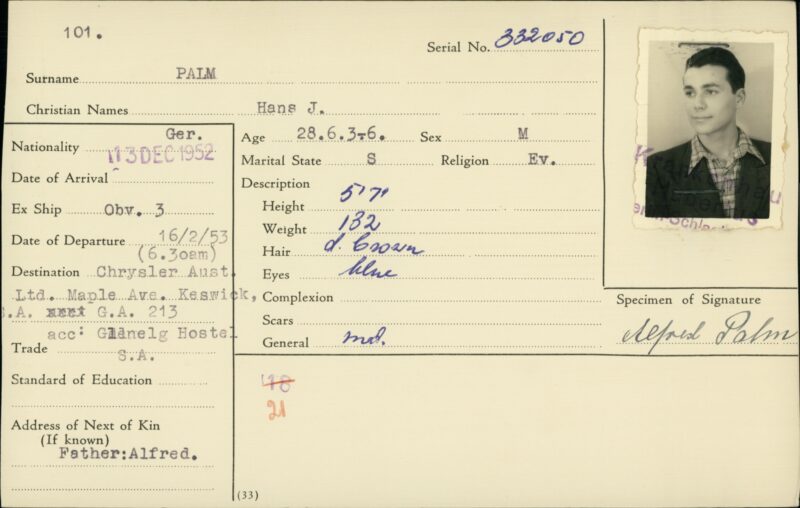 101.
Serial No. 332050
Surname PALM
Christian Names Hans J.
Nationality Ger.
13 DEC 1952
Date of Arrival
Ex Ship Obv. 3
Date of Departure 16/2/53
(6.30am)
Destination Chrysler Aust.
Ltd. Maple Ave. Keswick,
S.A. G.A. 213
acc: Glenelg Hostel
Trade S.A.
Standard of Education
Address of Next of Kin
(If known)
Father:Alfred.
Age 28.6.36. Sex M
Marital State S Religion Ev.
Description
Height 5'7"
Weight 132
Hair d. brown
Eyes blue
Complexion
Scars
General md.
Specimen of Signature
Alfred Palm
18
21
(33)